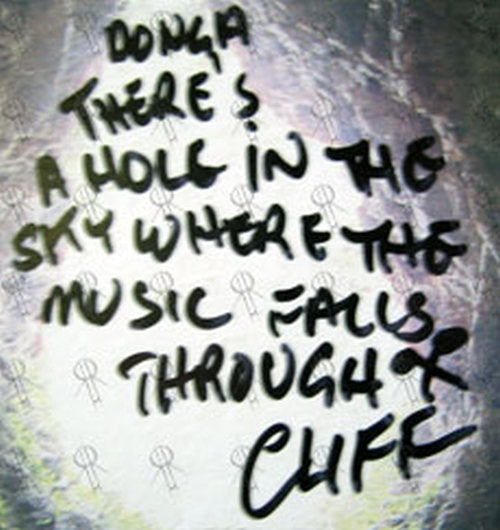 DONGA
THERE'S
A HOLE IN THE
SKY WHERE THE
MUSIC FALLS
THROUGH
CLIFF